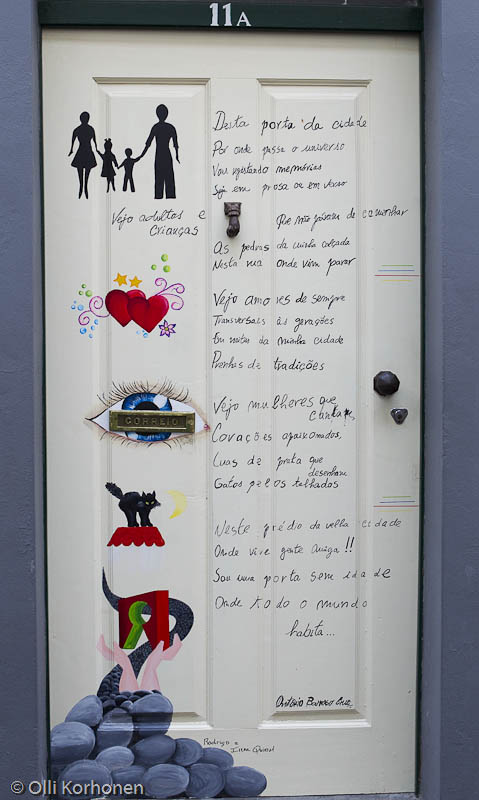 11A
Desta porta da cidade
Por onde passa o universo
Vou registando memórias
Seja em prosa ou em verso
Vejo adultos e
Crianças
Que não param de caminhar
As pedras da minha calçada
Nesta rua onde vim parar
Vejo amores de sempre
Transversais às gerações
Em noites da minha cidade
Prenhas de tradições
Vejo mulheres que
Cantam
CORREIO
Corações apaixonados
Luas de prata que
desenham
Gatos pelos telhados
Neste prédio da velha cidade
Onde vive gente amiga!!
Sou uma porta sem idade
Onde todo o mundo
habita...
António Barroso Cruz
Rodrigo e
© Olli Korhonen